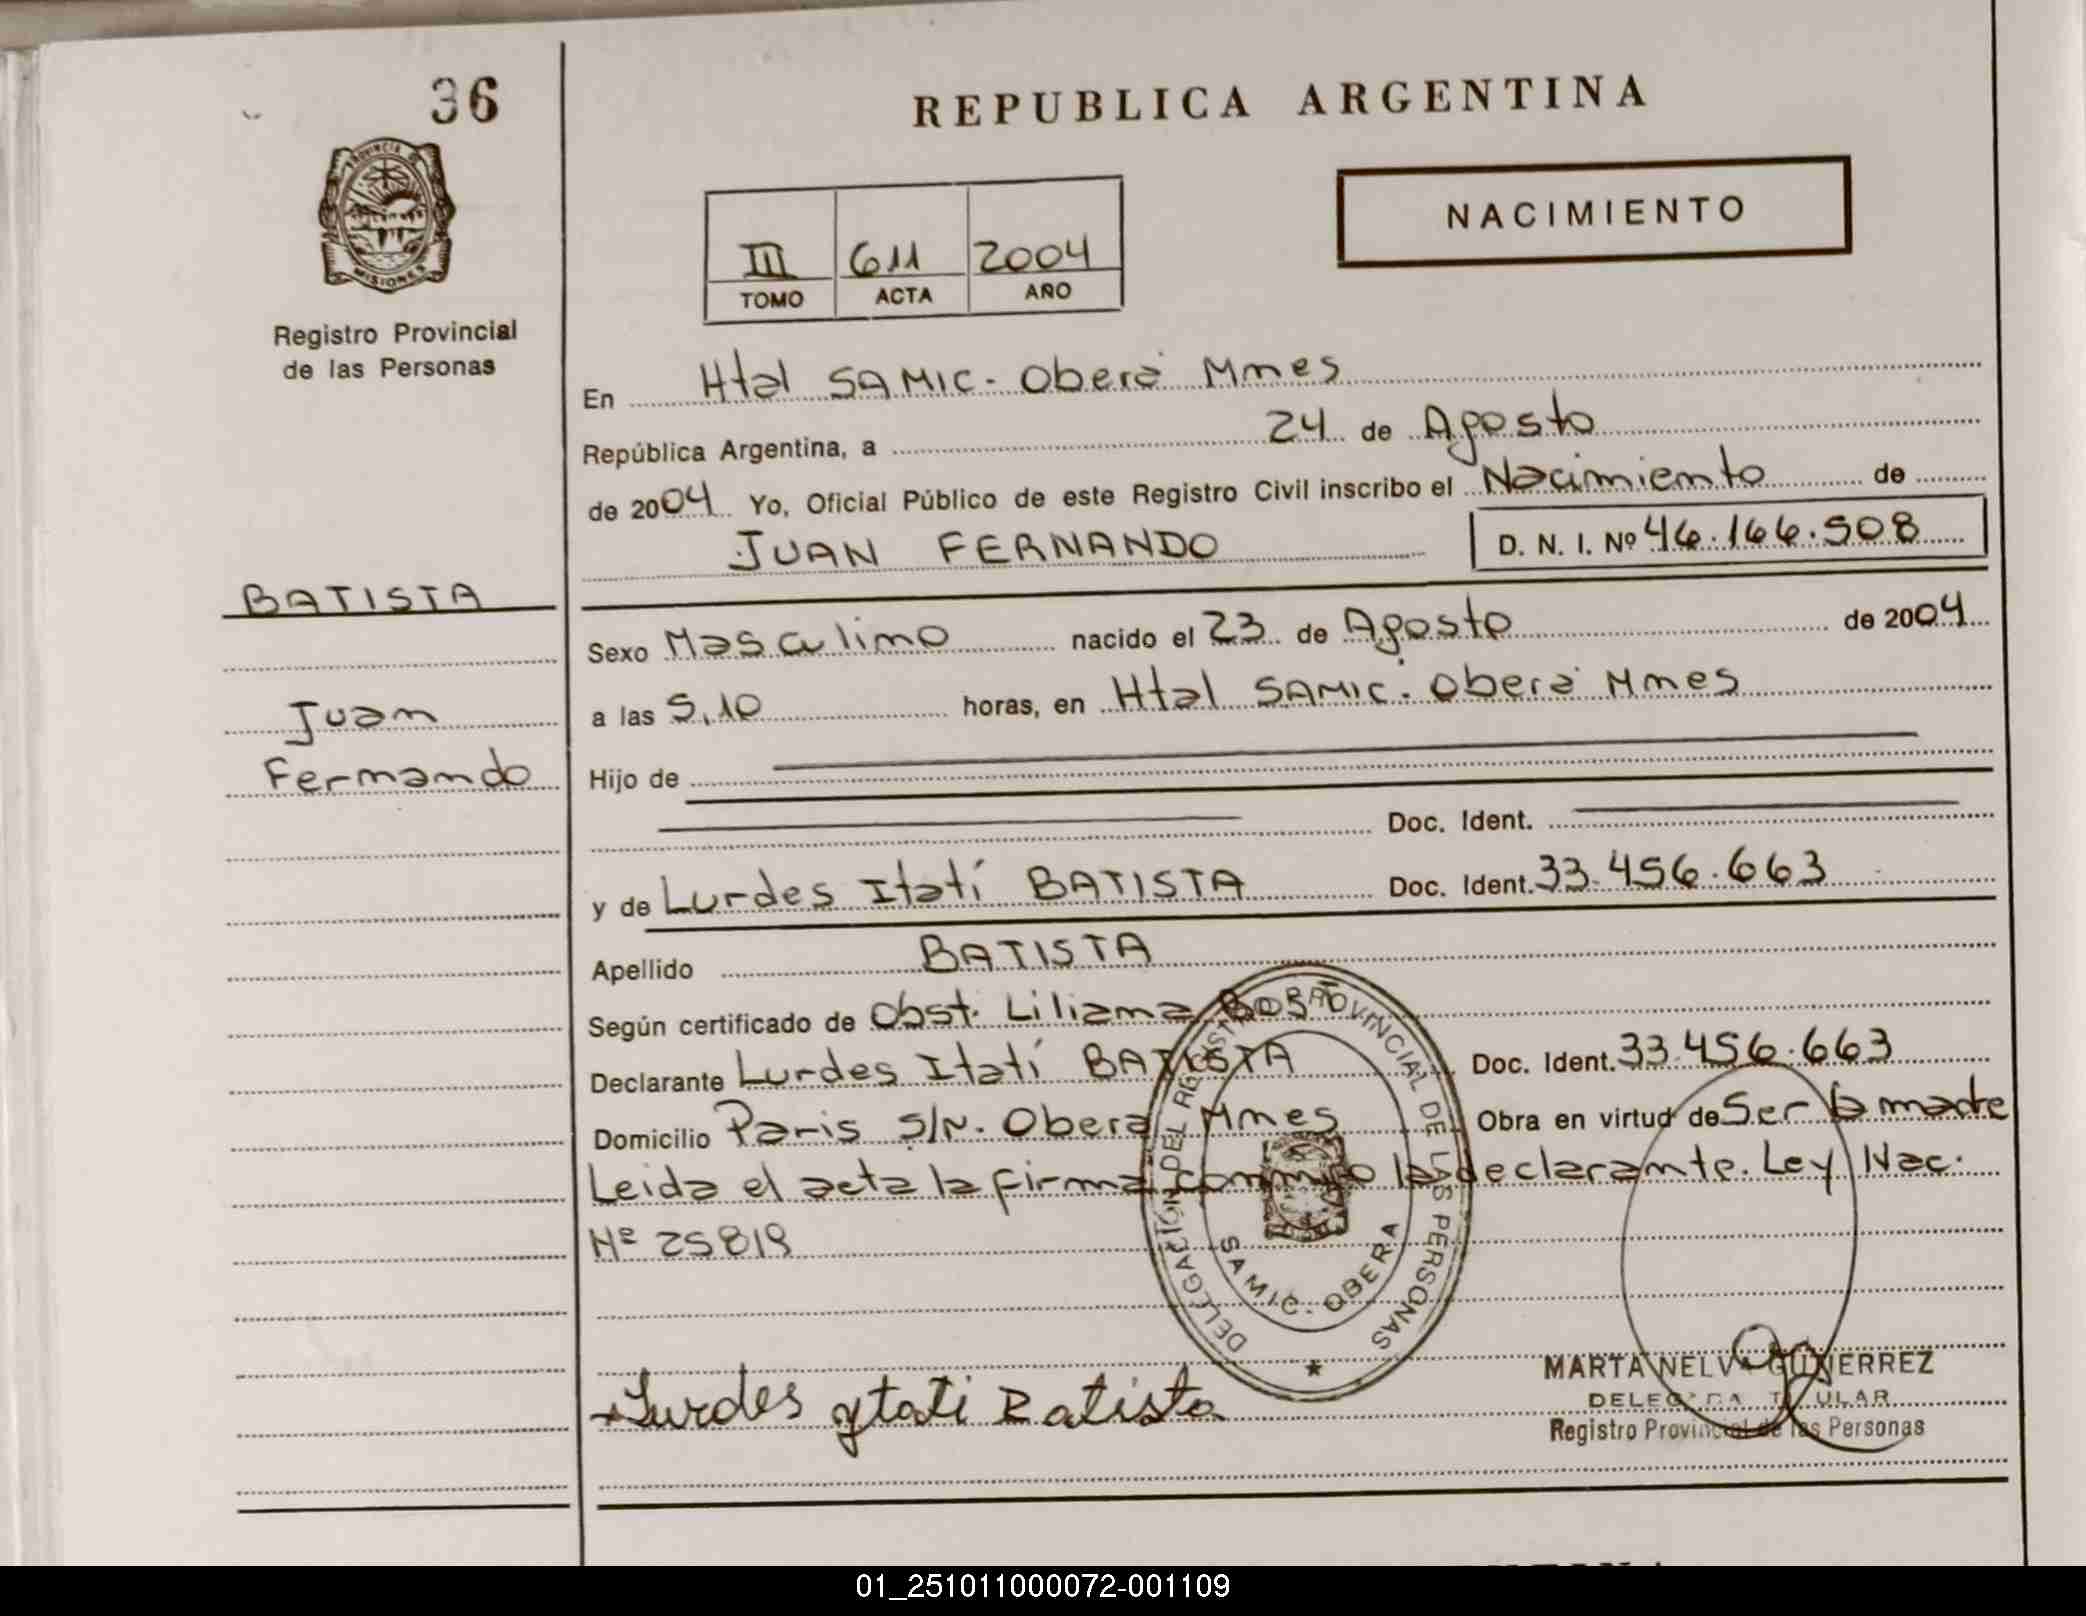 36
REPUBLICA ARGENTINA
PROVINCIA DE
MISIONES
NACIMIENTO
III 611 2004
TOMO ACTA AÑO
Registro Provincial
de las Personas
En Htal SAMIC - Oberá Mnes
República Argentina, a 24 de Agosto
de 2004 Yo, Oficial Público de este Registro Civil inscribo el Nacimiento de
JUAN FERNANDO D. N. I. Nº 46.166.508
BATISTA
Juan
Fernando
Sexo Masculino nacido el 23 de Agosto de 2004
a las 5,10 horas, en Htal SAMIC - Oberá Mnes
Hijo de
Doc. Ident.
y de Lurdes Itatí BATISTA Doc. Ident. 33.456.663
Apellido BATISTA
Según certificado de Obst. Liliana
Declarante Lurdes Itatí BATISTA Doc. Ident. 33.456.663
Domicilio Paris S/N. Oberá Mnes Obra en virtud de Ser la madre
Leida el acta la firma conmigo la declarante. Ley Nac.
Nº 25819
DELEGACIÓN DEL REGISTRO PROVINCIAL DE LAS PERSONAS
SAMIC - OBERA
Lurdes ytati Batista
MARTA NELVA GUTIERREZ
DELEGADA TITULAR
Registro Provincial de las Personas
01_251011000072-001109